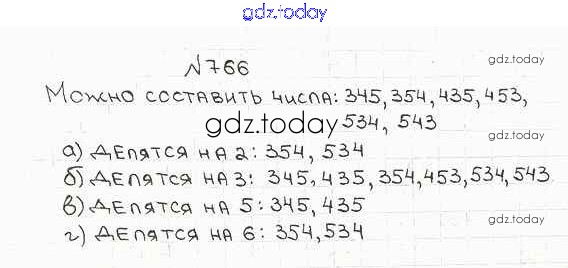 gdz.today
№766
gdz.today
Можно составить числа: 345, 354, 435, 453,
gdz.today 534, 543
а) делятся на 2: 354, 534
gdz.today
б) делятся на 3: 345, 435, 354, 453, 534, 543
в) делятся на 5: 345, 435
gdz.today
г) делятся на 6: 354, 534